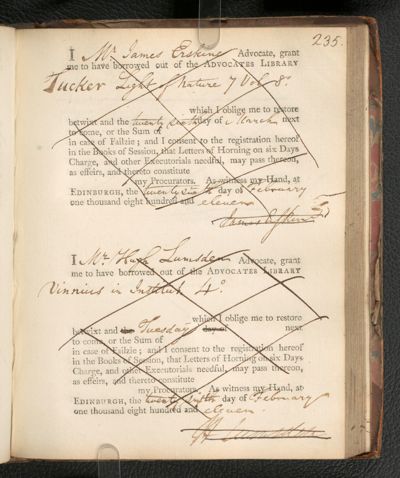 235.
I Mr. James Erskine Advocate, grant
me to have borrowed out of the ADVOCATES LIBRARY
Tucker Light of Nature 7 Vol 8o.
which I oblige me to restore
betwixt and the twenty sixth day of March next
to come, or the Sum of
in case of Failzie; and I consent to the registration hereof
in the Books of Session, that Letters of Horning on six Days
Charge, and other Executorials needful, may pass thereon,
as effeirs, and thereto constitute
my Procurators. As witness my Hand, at
EDINBURGH, the twenty sixth day of February
one thousand eight hundred and eleven
James Erskine
I Mr. Hugh Lumsden Advocate, grant
me to have borrowed out of the ADVOCATES LIBRARY
Vinnius in Institut 4o.
which I oblige me to restore
betwixt and the Tuesday day of next
to come, or the Sum of
in case of Failzie; and I consent to the registration hereof
in the Books of Session, that Letters of Horning on six Days
Charge, and other Executorials needful, may pass thereon,
as effeirs, and thereto constitute
my Procurators. As witness my Hand, at
EDINBURGH, the twenty sixth day of February
one thousand eight hundred and eleven.
H Lumsden